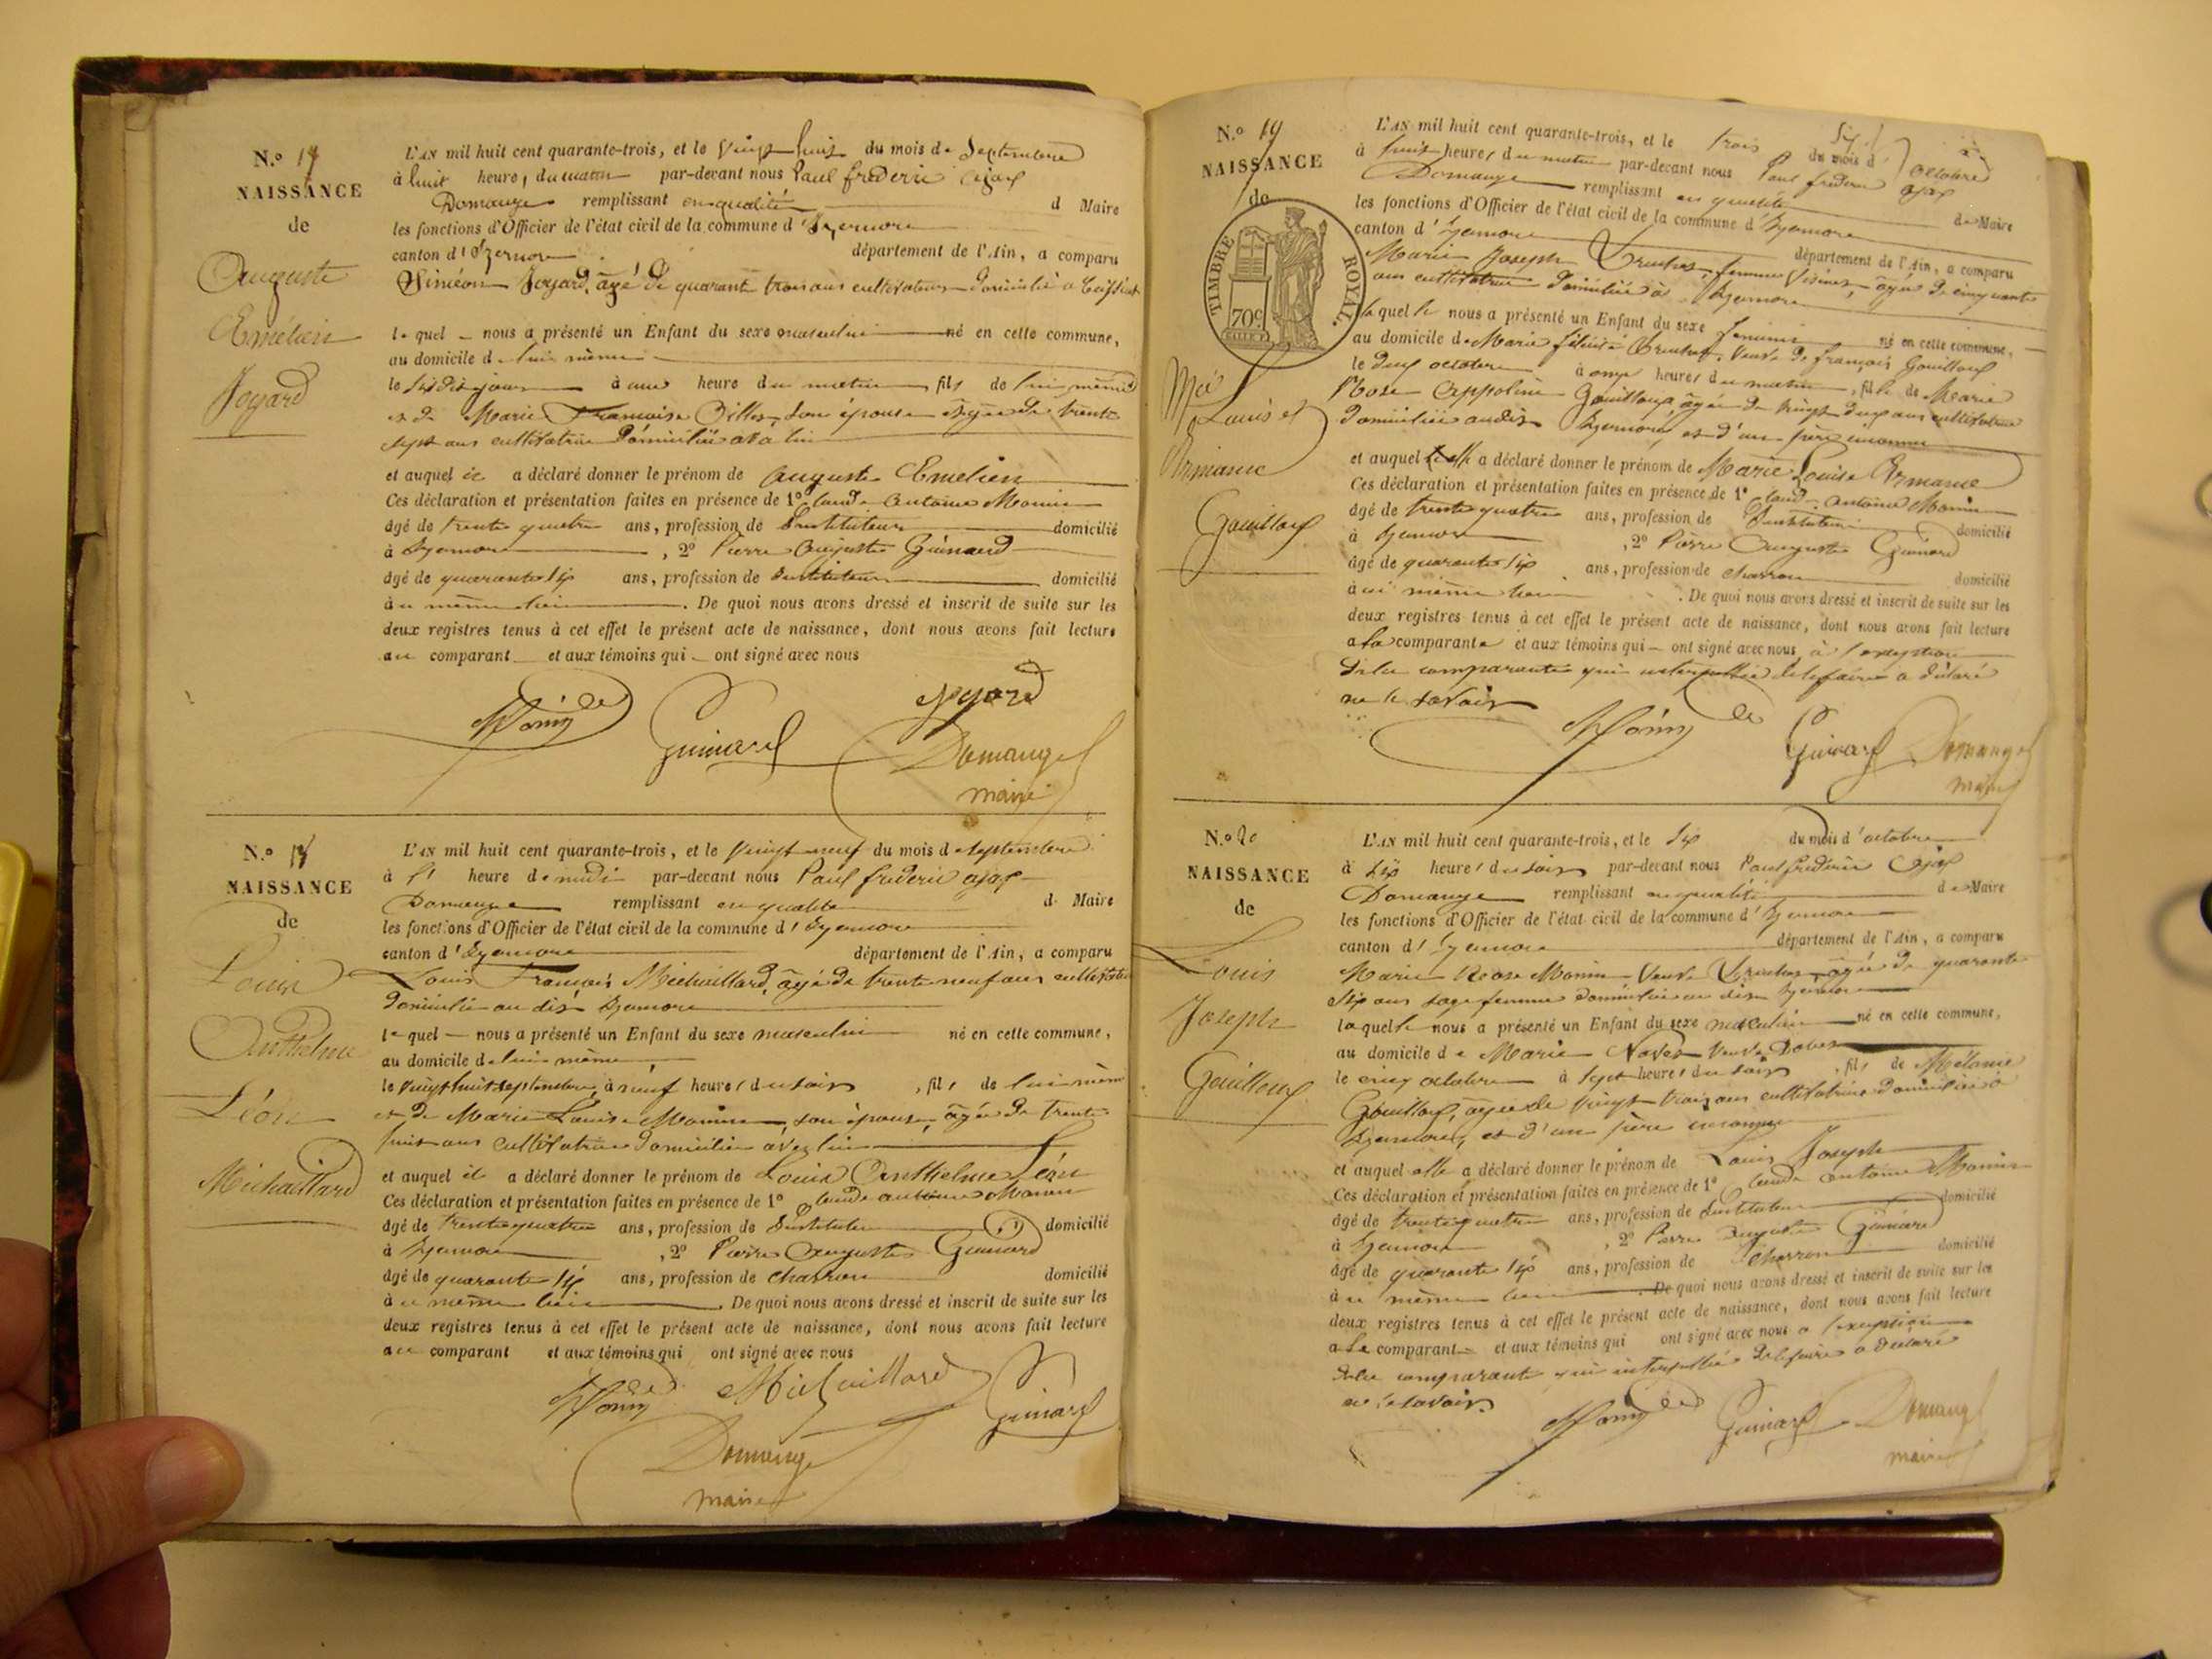 N.° 17
NAISSANCE
de
Auguste
Emélien
Joyard
L'AN mil huit cent quarante-trois, et le vingt huit du mois de Septembre
à huit heures, du matin par-devant nous Paul frédéric ajax
Domange remplissant en qualité d Maire
les fonctions d'Officier de l'état civil de la commune d'Izernore
canton d'Izernore département de l'Ain, a comparu
Siméon Joyard, agé de quarante trois ans cultivateur domicilié à
lequel nous a présenté un Enfant du sexe masculin né en cette commune,
au domicile de lui même
le dit jour à une heure du matin fils de lui même
et de Marie Françoise Billon, son épouse âgée de trente
sept ans cultivatrice domiciliée avec lui
et auquel il a déclaré donner le prénom de Auguste Emelien
Ces déclaration et présentation faites en présence de 1° Claude Antoine Monin
âgé de trente quatre ans, profession de Instituteur domicilié
à Izernore , 2° Pierre Auguste Guinard
âgé de quarante six ans, profession de Instituteur domicilié
au même lieu . De quoi nous avons dressé et inscrit de suite sur les
deux registres tenus à cet effet le présent acte de naissance, dont nous avons fait lecture
au comparant et aux témoins qui ont signé avec nous
Monin Joyard
Guinard Domange
maire
N.° 18
NAISSANCE
de
Louis
Anthelme
Léon
Michaillard
L'AN mil huit cent quarante-trois, et le vingt neuf du mois d septembre
à l' heure de midi par-devant nous Paul frédéric ajax
Domange remplissant en qualité d Maire
les fonctions d'Officier de l'état civil de la commune d'Izernore
canton d'Izernore département de l'Ain, a comparu
Louis François Michaillard, âgé de trente neuf ans cultivateur
domicilié au dit Izernore
lequel nous a présenté un Enfant du sexe masculin né en cette commune,
au domicile de lui même
le vingt huit septembre, à neuf heures du soir , fils de lui même
et de Marie Louise Monin, son épouse, âgée de trente
huit ans cultivatrice domiciliée avec lui
et auquel il a déclaré donner le prénom de Louis Anthelme Léon
Ces déclaration et présentation faites en présence de 1° Claude antoine Monin
âgé de trente quatre ans, profession de Instituteur domicilié
à Izernore , 2° Pierre Auguste Guinard
âgé de quarante six ans, profession de charron domicilié
à u même lieu . De quoi nous avons dressé et inscrit de suite sur les
deux registres tenus à cet effet le présent acte de naissance, dont nous avons fait lecture
au comparant et aux témoins qui ont signé avec nous
Monin Michaillard Guinard
Domange
maire
N.° 19
NAISSANCE
de
TIMBRE ROYAL.
70c
Mie
Louise
Armance
Gouilloux
L'AN mil huit cent quarante-trois, et le trois du mois d'octobre
à huit heures du matin par-devant nous Paul frédéric ajax
Domange remplissant en qualité de Maire
les fonctions d'Officier de l'état civil de la commune d'Izernore
canton d'Izernore département de l'Ain, a comparu
Marie Joseph femme âgée de cinquante
ans cultivatrice domiciliée à Izernore
laquelle nous a présenté un Enfant du sexe féminin né en cette commune,
au domicile de Marie félicité veuve de françois Gouilloux
le deux octobre à onze heures du matin, fille de Marie
Rose Appoline Gouilloux, âgée de vingt deux ans cultivatrice
domiciliée audit Izernore, et d'un père inconnu
et auquel elle a déclaré donner le prénom de Marie Louise Armance
Ces déclaration et présentation faites en présence de 1° Claude antoine Monin
âgé de trente quatre ans, profession de Instituteur domicilié
à Izernore , 2° Pierre Auguste Guinard
âgé de quarante six ans, profession de charron domicilié
à u même lieu . De quoi nous avons dressé et inscrit de suite sur les
deux registres tenus à cet effet le présent acte de naissance, dont nous avons fait lecture
a la comparante et aux témoins qui ont signé avec nous, à l'exception
de la comparante qui interpellée de le faire a déclaré
ne le savoir
Monin Guinard Domange
maire
N.° 20
NAISSANCE
de
Louis
Joseph
Gouilloux
L'AN mil huit cent quarante-trois, et le six du mois d'octobre
à six heures du soir par-devant nous Paul frédéric Ajax
Domange remplissant en qualité de Maire
les fonctions d'Officier de l'état civil de la commune d'Izernore
canton d'Izernore département de l'Ain, a comparu
Marie Rose Monin Veuve âgée de quarante
six ans sage femme domiciliée au dit Izernore
laquelle nous a présenté un Enfant du sexe masculin né en cette commune,
au domicile de Marie veuve
le cinq octobre à sept heures du soir, fils de Mélanie
Gouilloux, âgée de vingt trois ans cultivatrice domiciliée à
Izernore, et d'un père inconnu
et auquel elle a déclaré donner le prénom de Louis Joseph
Ces déclaration et présentation faites en présence de 1° Claude antoine Monin
âgé de trente quatre ans, profession de Instituteur domicilié
à Izernore , 2° Pierre Auguste Guinard
âgé de quarante six ans, profession de charron domicilié
à u même lieu De quoi nous avons dressé et inscrit de suite sur les
deux registres tenus à cet effet le présent acte de naissance, dont nous avons fait lecture
a la comparante et aux témoins qui ont signé avec nous a l'exception
de la comparante qui interpellée de le faire a déclaré
ne le savoir
Monin Guinard Domange
maire